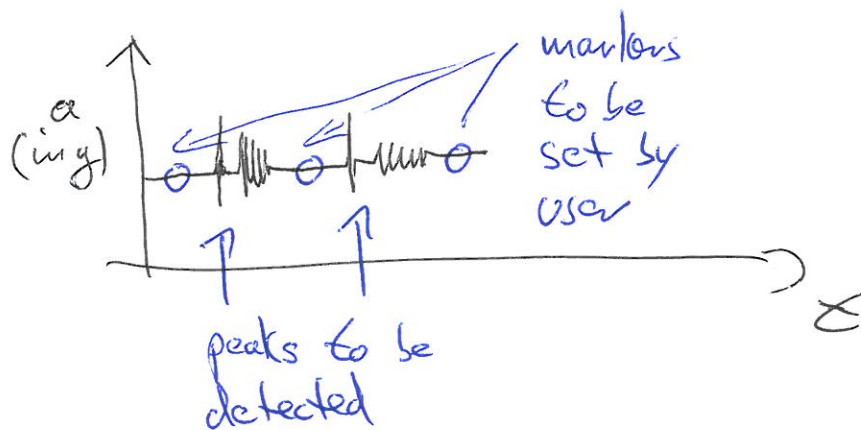 a
(in g)
markers
to be
set by
user
peaks to be
detected
t